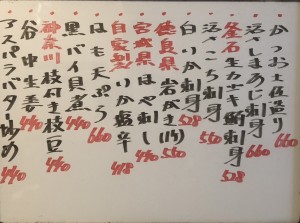 かつお土佐造り 660
活〆しまあじ刺身 660
釜石生カジキ鮪刺身 528
活〆こち刺身 550
白いか刺身 528
徳島県岩がき(1ケ) 550
宮城県ほや刺し 440
自家製いか塩辛 418
はも天ぷら 660
黒バイ貝煮 440
神奈川枝付き枝豆 440
谷中生姜 440
アスパラバター炒め 440